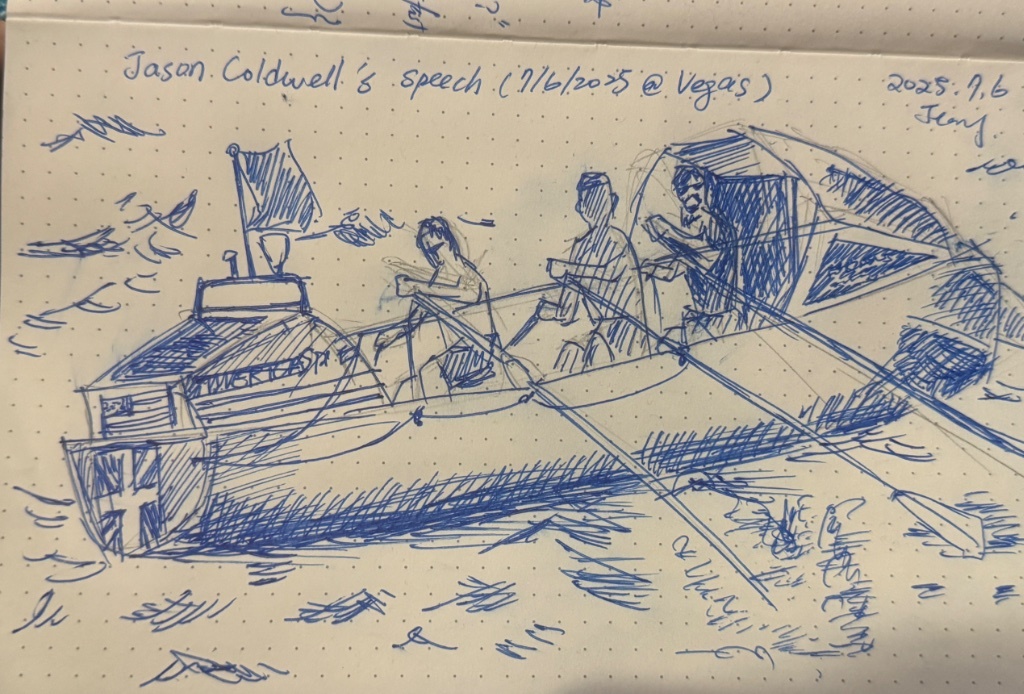 Jason Coldwell's speech (7/6/2025 @ Vegas)
2025.7.6